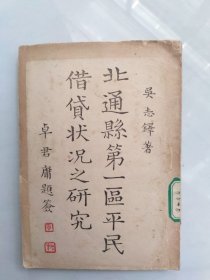 吳志鐸著
北通縣第一區平民
借貸狀况之研究
卓君庸題簽